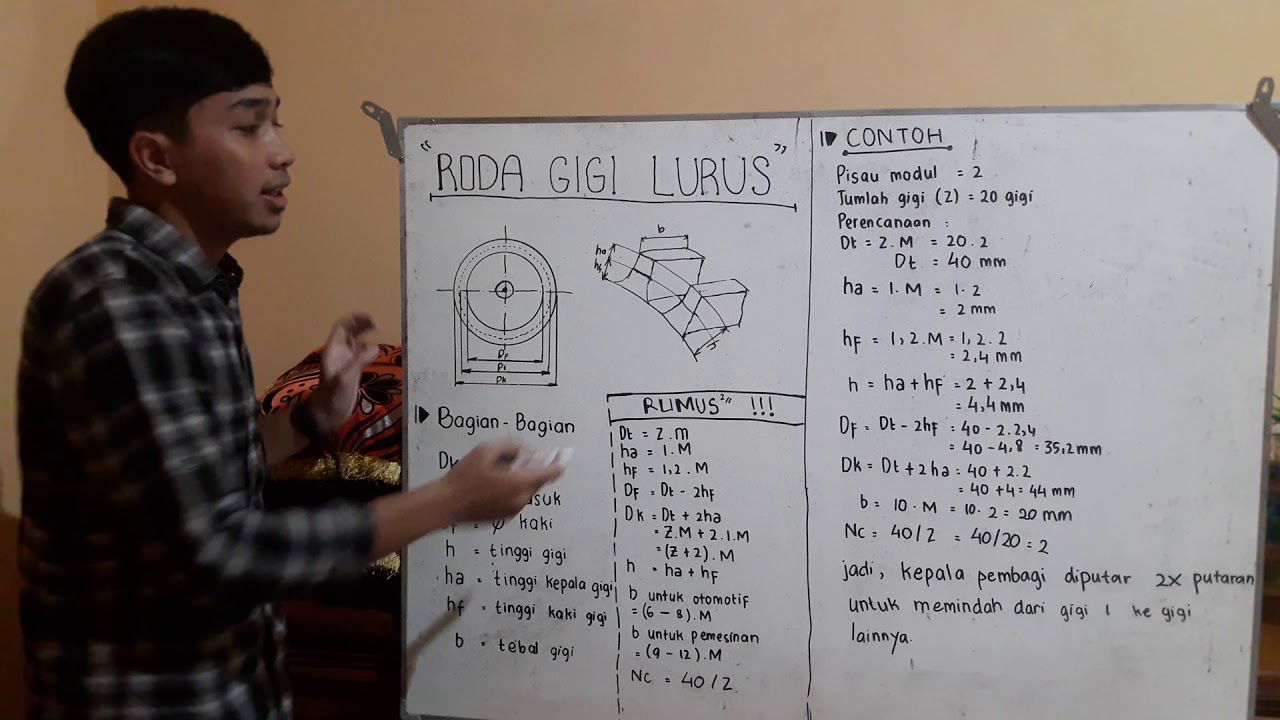 "RODA GIGI LURUS"
b
ha
hf
DF
Di
Dk
Bagian-Bagian
Dk
suk
= φ kaki
h = tinggi gigi
ha = tinggi kepala gigi
hf = tinggi kaki gigi
b = tebal gigi
RUMUS²" !!!
Dt = Z.M
ha = 1.M
hf = 1,2.M
DF = Dt - 2hF
Dk = Dt + 2ha
= Z.M + 2.1.M
= (Z+2).M
h = ha + hF
b untuk otomotif
= (6 - 8).M
b untuk pemesinan
= (9 - 12).M
Nc = 40/Z
CONTOH
Pisau modul = 2
Jumlah gigi (Z) = 20 gigi
Perencanaan :
Dt = Z.M = 20.2
Dt = 40 mm
ha = 1.M = 1.2
= 2 mm
hF = 1,2.M = 1,2.2
= 2,4 mm
h = ha + hF = 2 + 2,4
= 4,4 mm
DF = Dt - 2hF = 40 - 2.2,4
= 40 - 4,8 = 35,2 mm
Dk = Dt + 2ha = 40 + 2.2
= 40 + 4 = 44 mm
b = 10.M = 10.2 = 20 mm
Nc = 40/Z = 40/20 = 2
jadi, kepala pembagi diputar 2x putaran
untuk memindah dari gigi 1 ke gigi
lainnya.